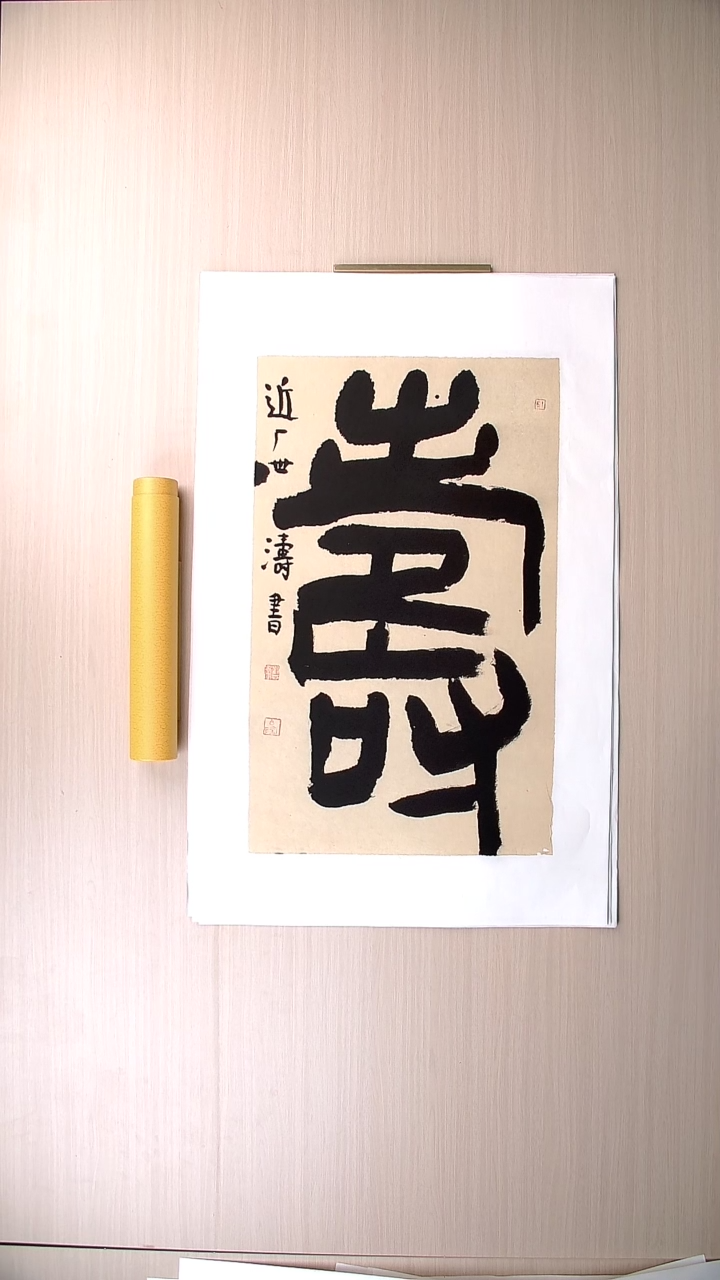 壽
近厂世濤書